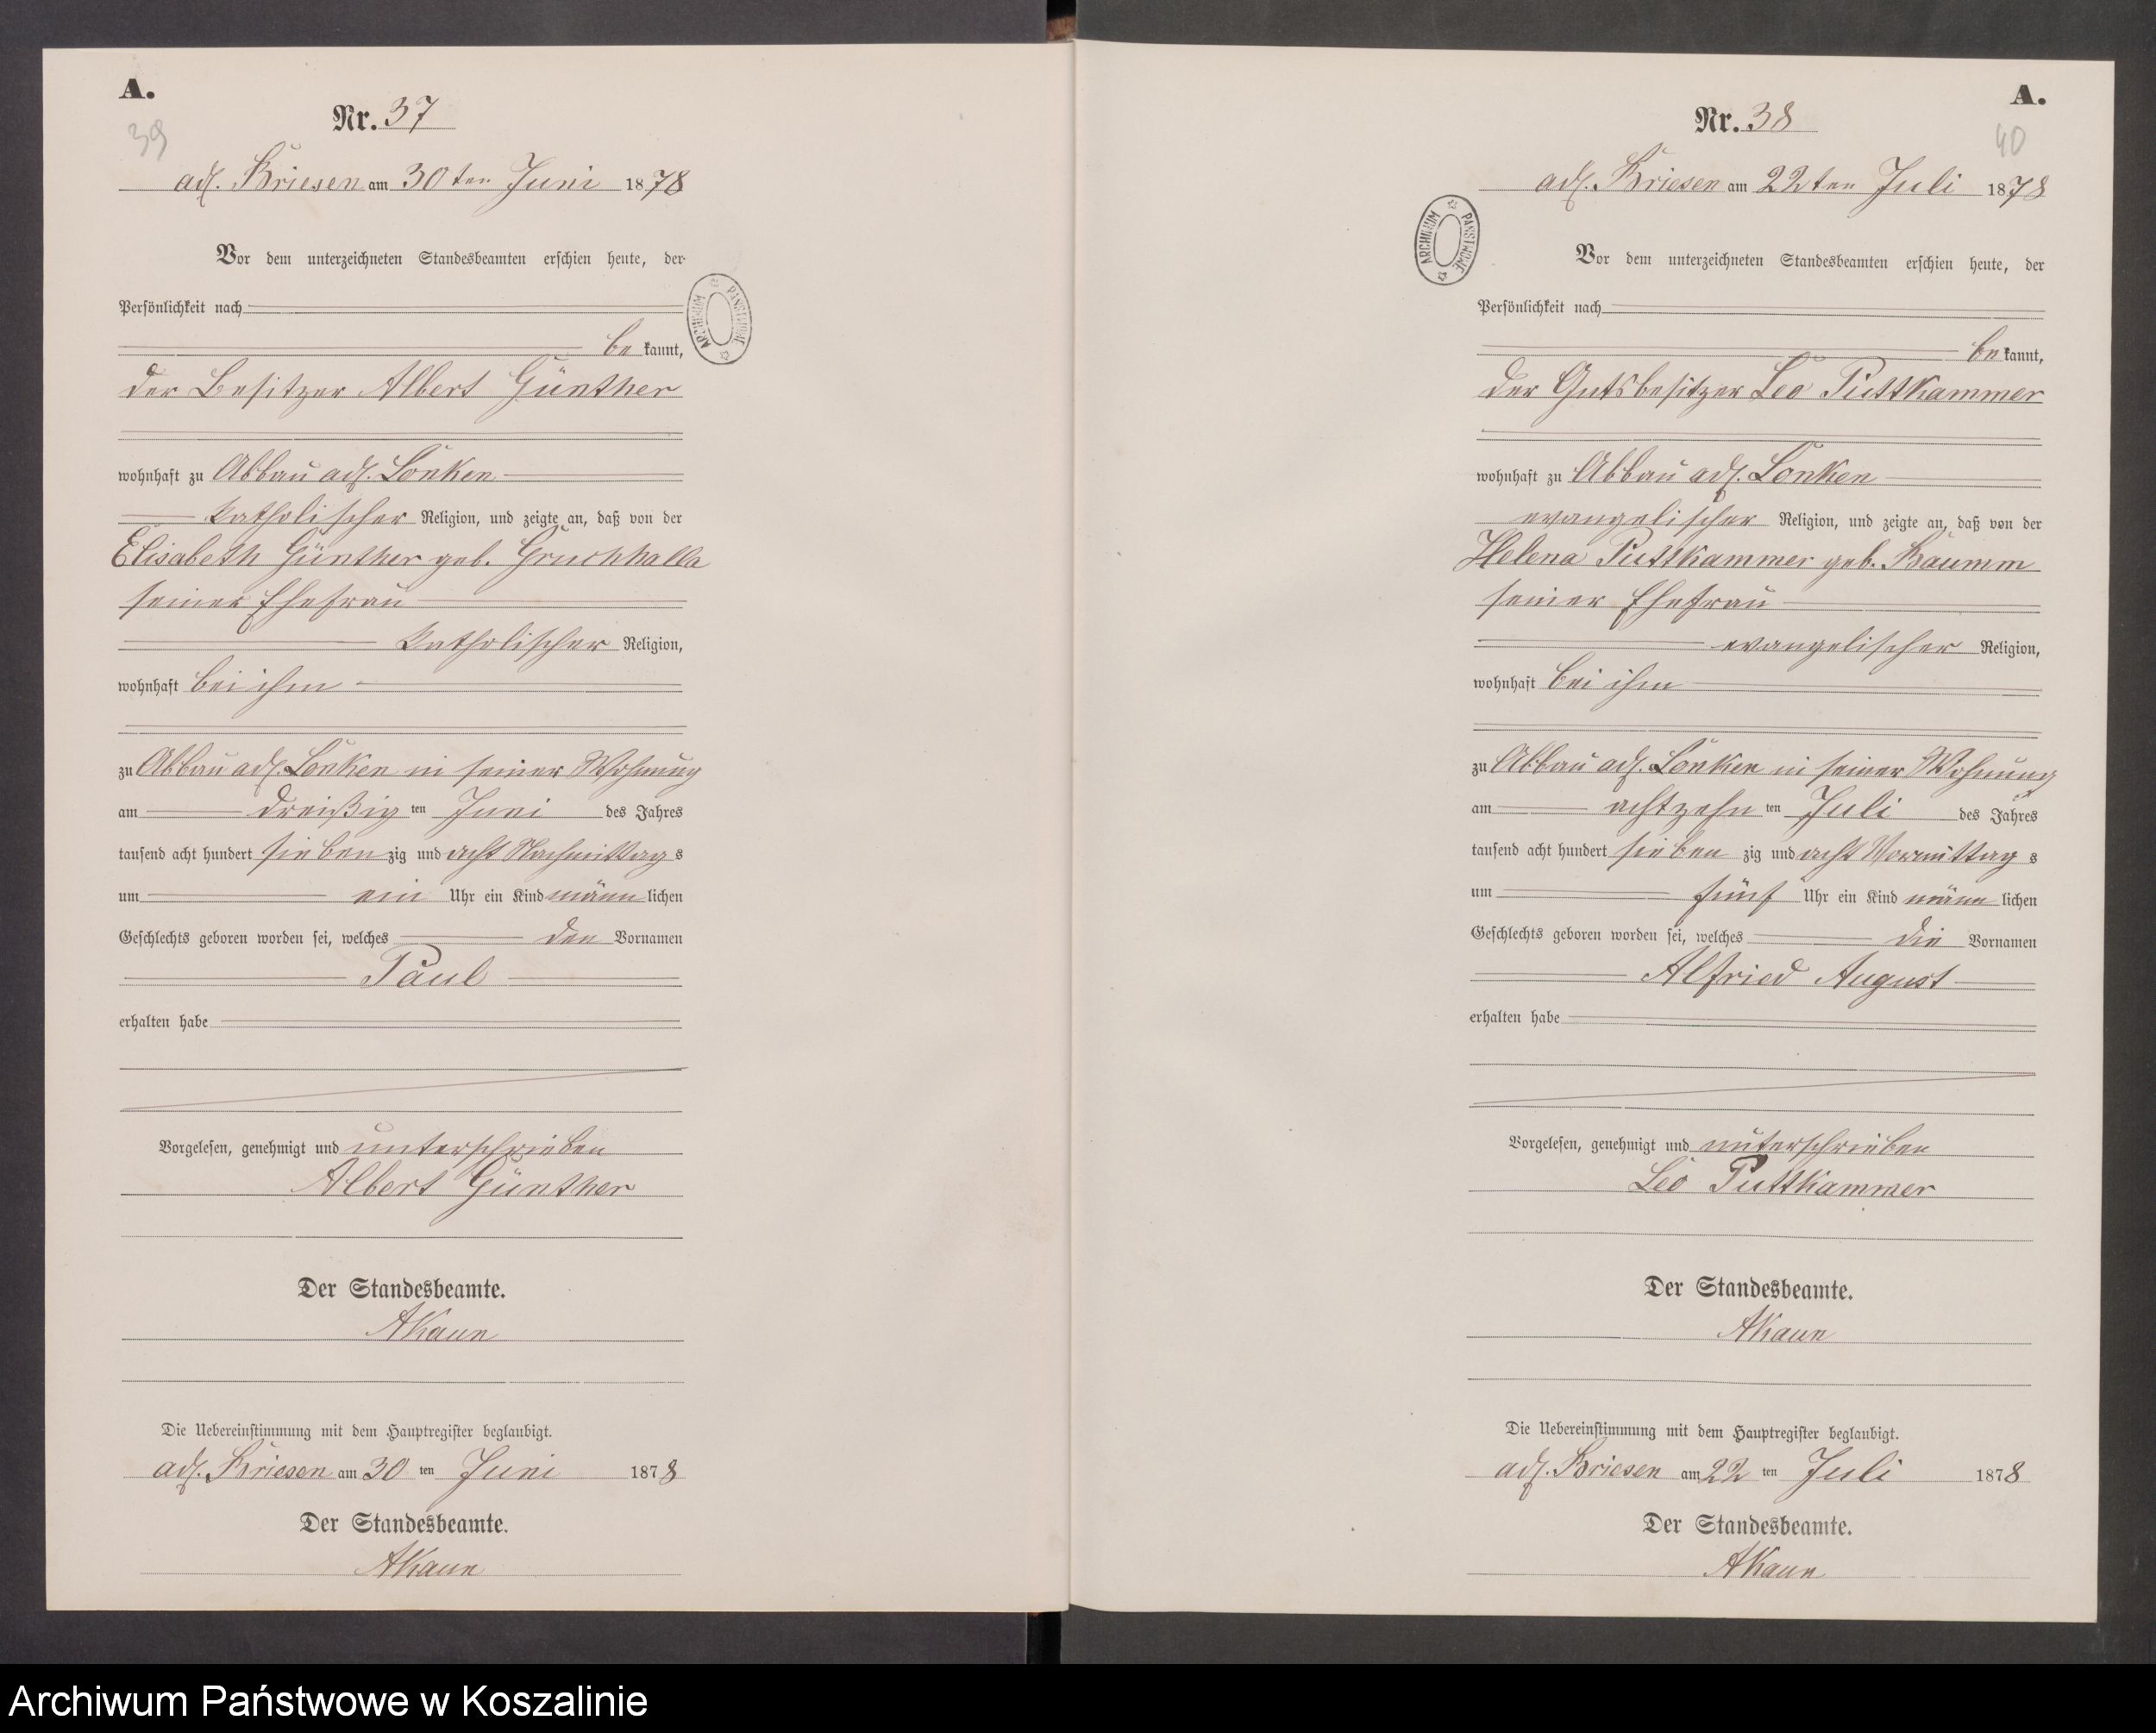 A.
39
Nr. 37
adl. Briesen am 30ten Juni 1878
Vor dem unterzeichneten Standesbeamten erschien heute, der
Persönlichkeit nach
be kannt,
der Besitzer Albert Günther
wohnhaft zu Abbau adl. Lonken
katholischer Religion, und zeigte an, daß von der
Elisabeth Günther geb. Gruchhalla
seiner Ehefrau
katholischer Religion,
wohnhaft bei ihm
zu Abbau adl. Lonken in seiner Wohnung
am dreißig ten Juni des Jahres
tausend acht hundert sieben zig und acht Nachmittag s
um ein Uhr ein Kind männ lichen
Geschlechts geboren worden sei, welches den Vornamen
Paul
erhalten habe
Vorgelesen, genehmigt und unterschrieben
Albert Günther
Der Standesbeamte.
AKaun
Die Uebereinstimmung mit dem Hauptregister beglaubigt.
adl. Briesen am 30 ten Juni 1878
Der Standesbeamte.
AKaun
ARCHIWUM PAŃSTWOWE
A.
40
Nr. 38
adl. Briesen am 22ten Juli 1878
ARCHIWUM PAŃSTWOWE
Vor dem unterzeichneten Standesbeamten erschien heute, der
Persönlichkeit nach
be kannt,
der Gutsbesitzer Leo Puttkammer
wohnhaft zu Abbau adl. Lonken
evangelischer Religion, und zeigte an, daß von der
Helena Puttkammer geb. Baumm
seiner Ehefrau
evangelischer Religion,
wohnhaft bei ihm
zu Abbau adl. Lonken in seiner Wohnung
am achtzehn ten Juli des Jahres
tausend acht hundert sieben zig und acht Vormittag s
um fünf Uhr ein Kind männ lichen
Geschlechts geboren worden sei, welches die Vornamen
Alfried August
erhalten habe
Vorgelesen, genehmigt und unterschrieben
Leo Puttkammer
Der Standesbeamte.
AKaun
Die Uebereinstimmung mit dem Hauptregister beglaubigt.
adl. Briesen am 22 ten Juli 1878
Der Standesbeamte.
AKaun
Archiwum Państwowe w Koszalinie